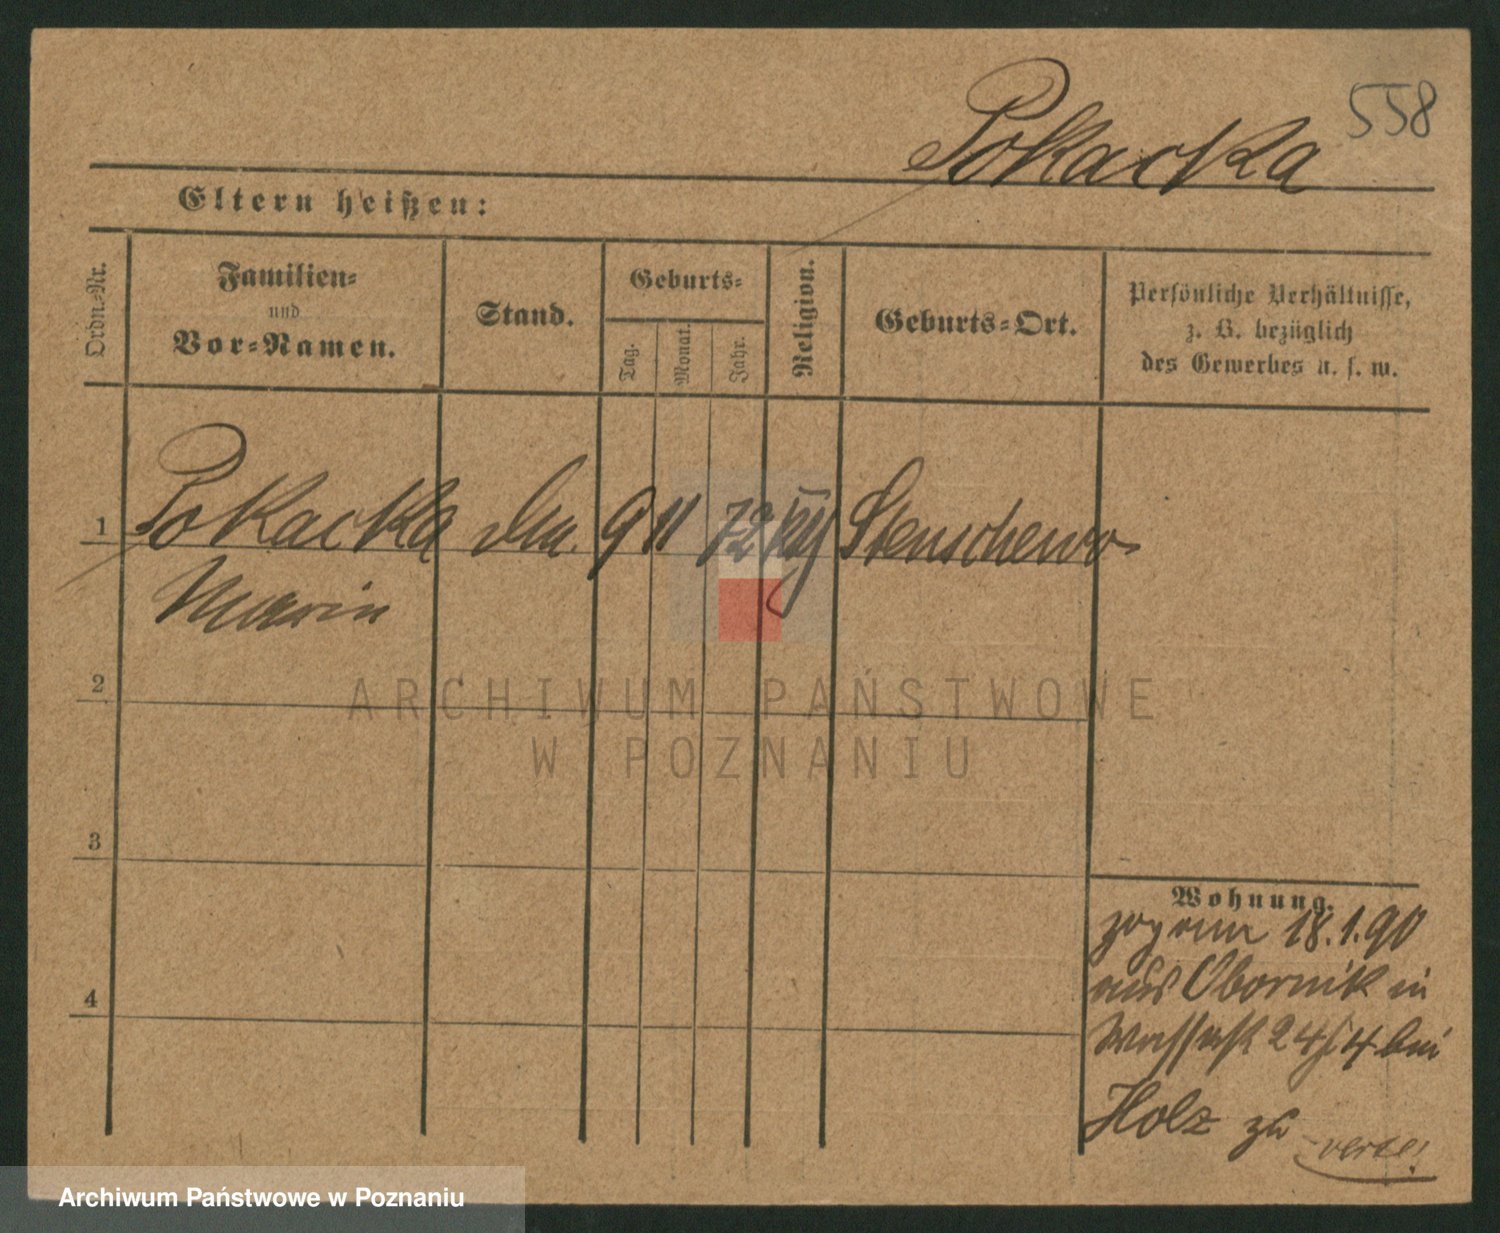 558
Pokacka
Eltern heißen:
Ordn.-Nr.
Familien-
und
Vor-Namen.
Stand.
Geburts-
Tag.
Monat.
Jahr.
Religion.
Geburts-Ort.
Persönliche Verhältnisse,
z. B. bezüglich
des Gewerbes u. s. w.
1 Pokacka 9 11 72 Stenschewo
Marie
2
ARCHIWUM PAŃSTWOWE
W POZNANIU
3
Wohnung.
zog am 18.1.90
aus Obornik in
4
Wasserstr 24/4 bei
Holz zu
verte!
Archiwum Państwowe w Poznaniu